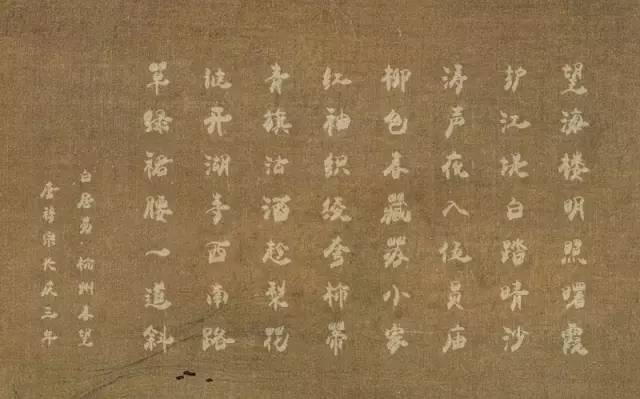 望海楼明照曙霞
护江堤白踏晴沙
涛声夜入伍员庙
柳色春藏苏小家
红袖织绫夸柿蒂
青旗沽酒趁梨花
谁开湖寺西南路
草绿裙腰一道斜
白居易·杭州春望
唐穆宗长庆三年